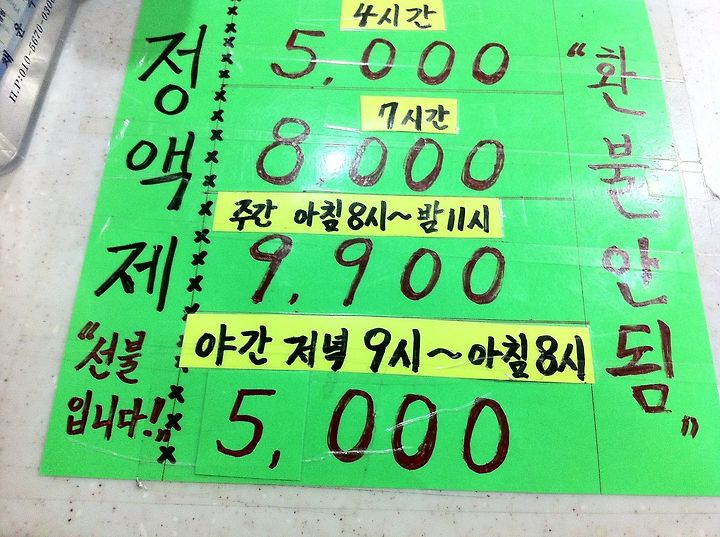 정액제
"선불
입니다!"
4시간
5,000
7시간
8,000
주간 아침8시~밤11시
9,900
야간 저녁 9시~아침8시
5,000
"환불안됨"
H.P:010-5670-030